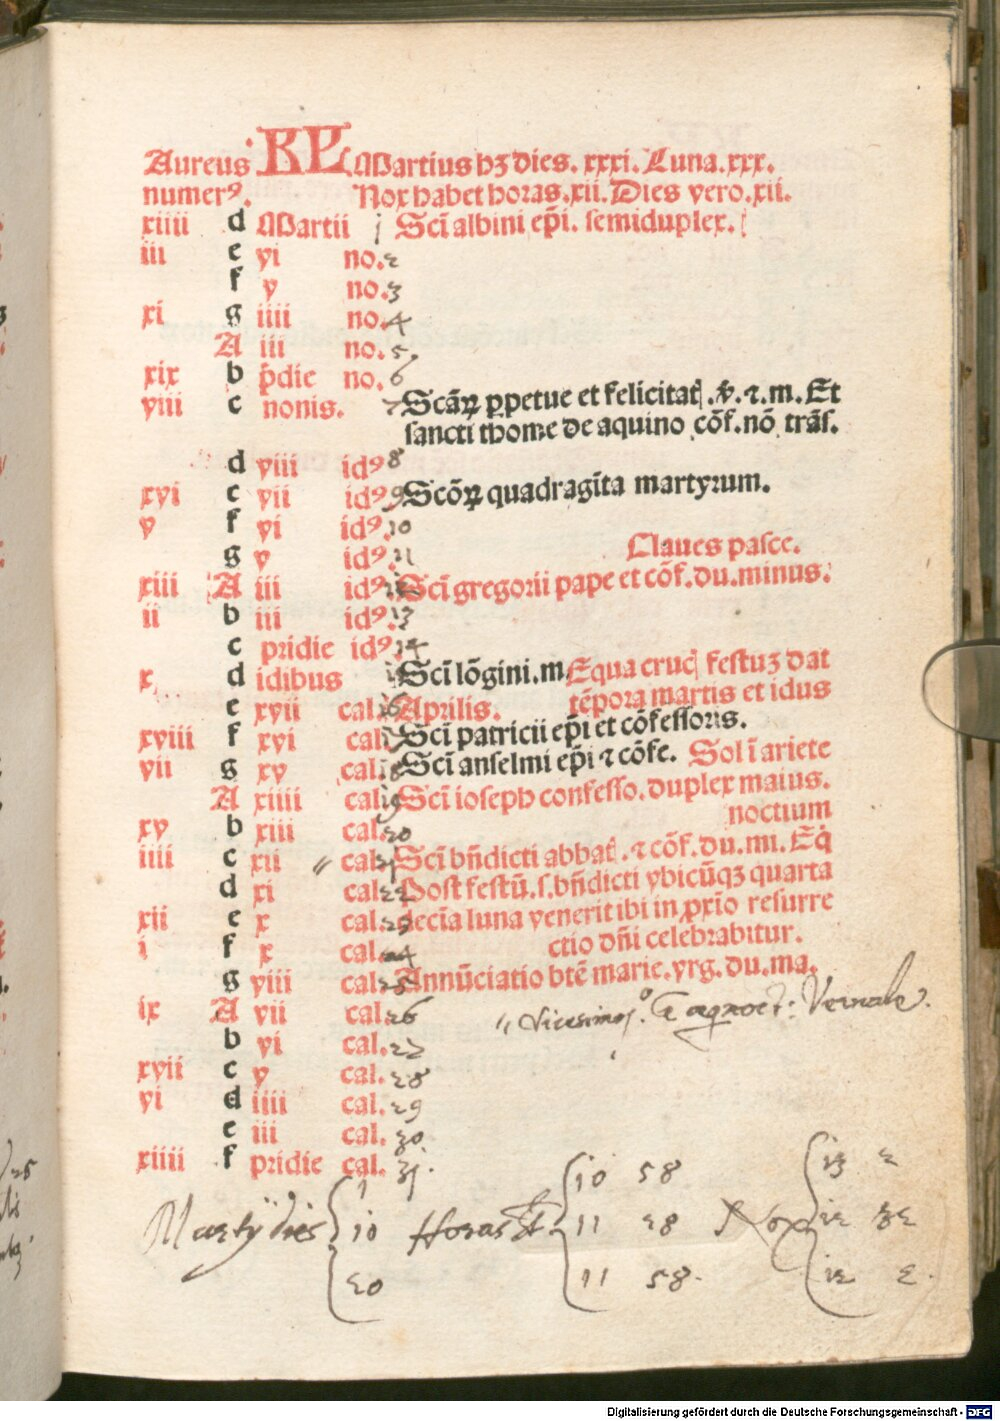 Aureus KL Martius hʒ dies. xxxi. Luna. xxx.
numerꝰ. Nox habet horas. xii. Dies vero. xii.
xiiii d Martii j Sci albini epi. semiduplex.
iii e vi no. 2
f v no. 3
xi g iiii no. 4
A iii no. 5.
xix b pdie no. 6
viii c nonis. 7 Scãꝝ ppetue et felicitat. v. ⁊. m. Et
sancti thome de aquino cõf. nõ trãs.
d viii idꝰ 8
xvi e vii idꝰ 9 Scõꝝ quadragĩta martyrum.
v f vi idꝰ. 10
g v idꝰ. 11 Claues pasce.
xiii A iii idꝰ 12 Sci gregorii pape et cõf. du. minus.
ii b iii idꝰ. 13
c pridie idꝰ. 14
x d idibus Sci lõgini. m. Equa cruc festuʒ dat
e xvii cal. 16 Aprilis. tẽpora martis et idus
xviii f xvi cal. 17 Sci patricii epi et cõfessoris.
vii g xv cal. 18 Sci anselmi epi ⁊ cõfe. Sol ĩ ariete
A xiiii cal. 19 Sci ioseph confesso. duplex maius.
xv b xiii cal. 20 noctium
iiii c xii " cal. 21 Sci bñdicti abbat. ⁊ cõf. du. mi. Eq
d xi cal. 22 Post festũ. s. bñdicti vbicũqʒ quarta
xii e x cal. 23 decĩa luna venerit ibi in pxĩo resurre
i f x cal. 24 ctio dñi celebrabitur.
g viii cal. 25 Annũciatio btẽ marie. vrg. du. ma.
ix A vii cal. 26 " vicesimo Vernale.
b vi cal. 27
xvii c v cal. 28
vi d iiii cal. 29
e iii cal. 30
xiiii f pridie cal. 31.
1 10 58 13 2
Martij dies 10 Horas 11 28 Nox 12 32
20 11 58. 12 2.
Digitalisierung gefördert durch die Deutsche Forschungsgemeinschaft - DFG